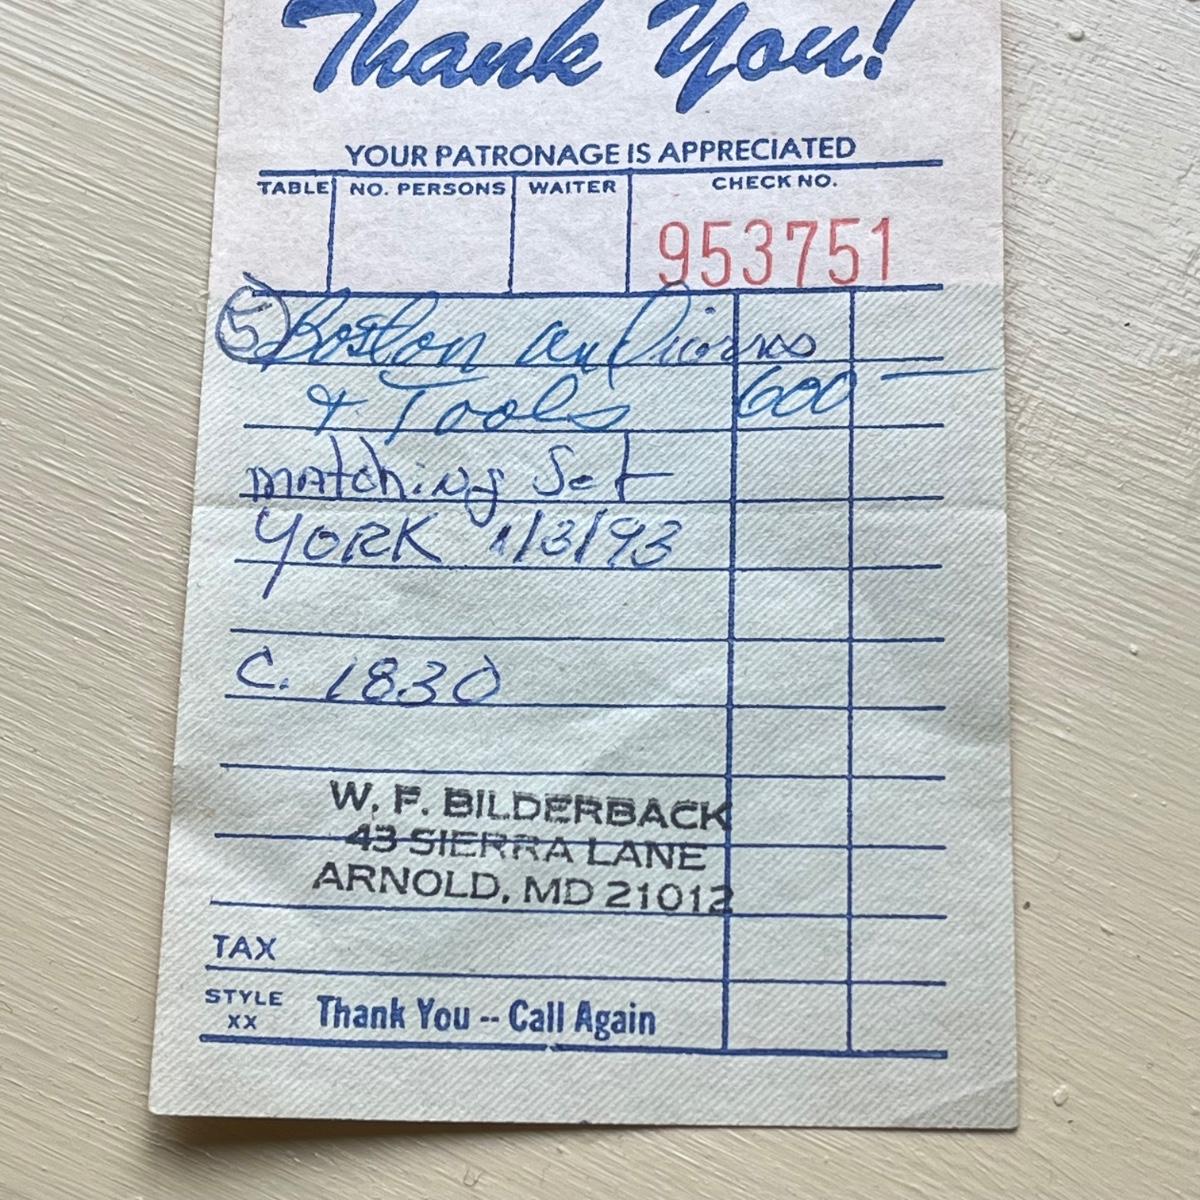 Thank You!
YOUR PATRONAGE IS APPRECIATED
TABLE NO. PERSONS WAITER CHECK NO.
953751
5 Boston andirons
& Tools 600 —
matching Set
YORK 1/3/93
C. 1830
W. F. BILDERBACK
43 SIERRA LANE
ARNOLD, MD 21012
TAX
STYLE
XX
Thank You -- Call Again